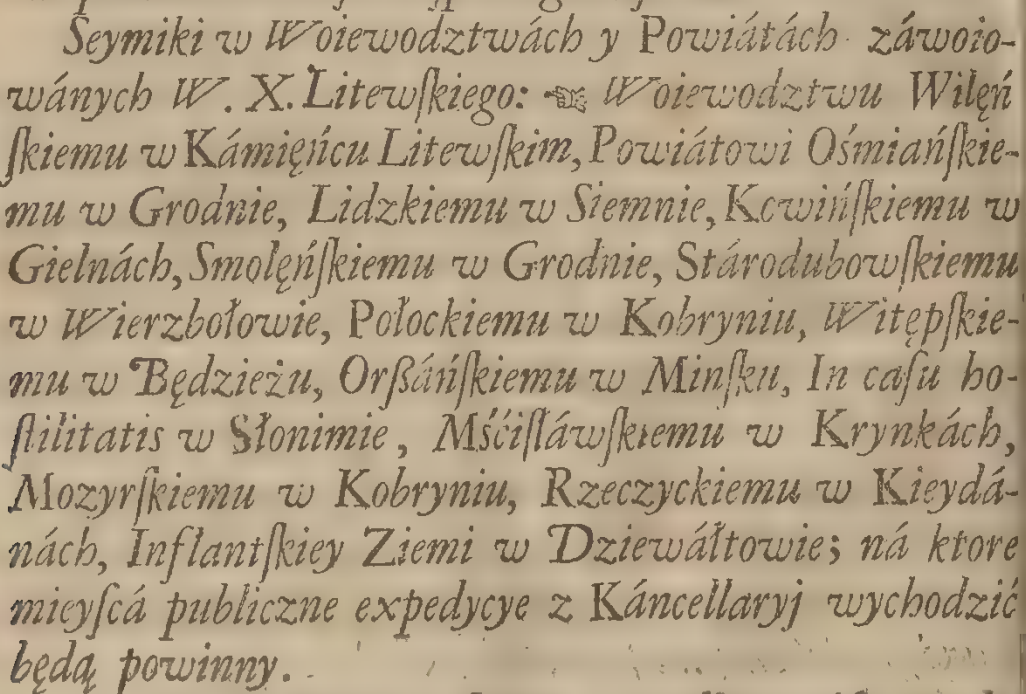 Seymiki w Woiewodztwách y Powiátách záwoio-
wánych W. X. Litewſkiego: ☜ Woiewodztwu Wilęń
ſkiemu w Kámięńcu Litewſkim, Powiátowi Ośmiáńſkie-
mu w Grodnie, Lidzkiemu w Siemnie, Kowińſkiemu w
Gielnách, Smolęńſkiemu w Grodnie, Stárodubowſkiemu
w Wierzbołowie, Połockiemu w Kobryniu, Witępſkie-
mu w Będzieżu, Orßáńſkiemu w Minſku, In caſu ho-
ſtilitatis w Słonimie, Mśćiſláwſkiemu w Krynkách,
Mozyrſkiemu w Kobryniu, Rzeczyckiemu w Kieydá-
nách, Inflantſkiey Ziemi w Dziewáłtowie; ná ktore
mieyſcá publiczne expedycye z Káncellaryj wychodzić
będą powinny.